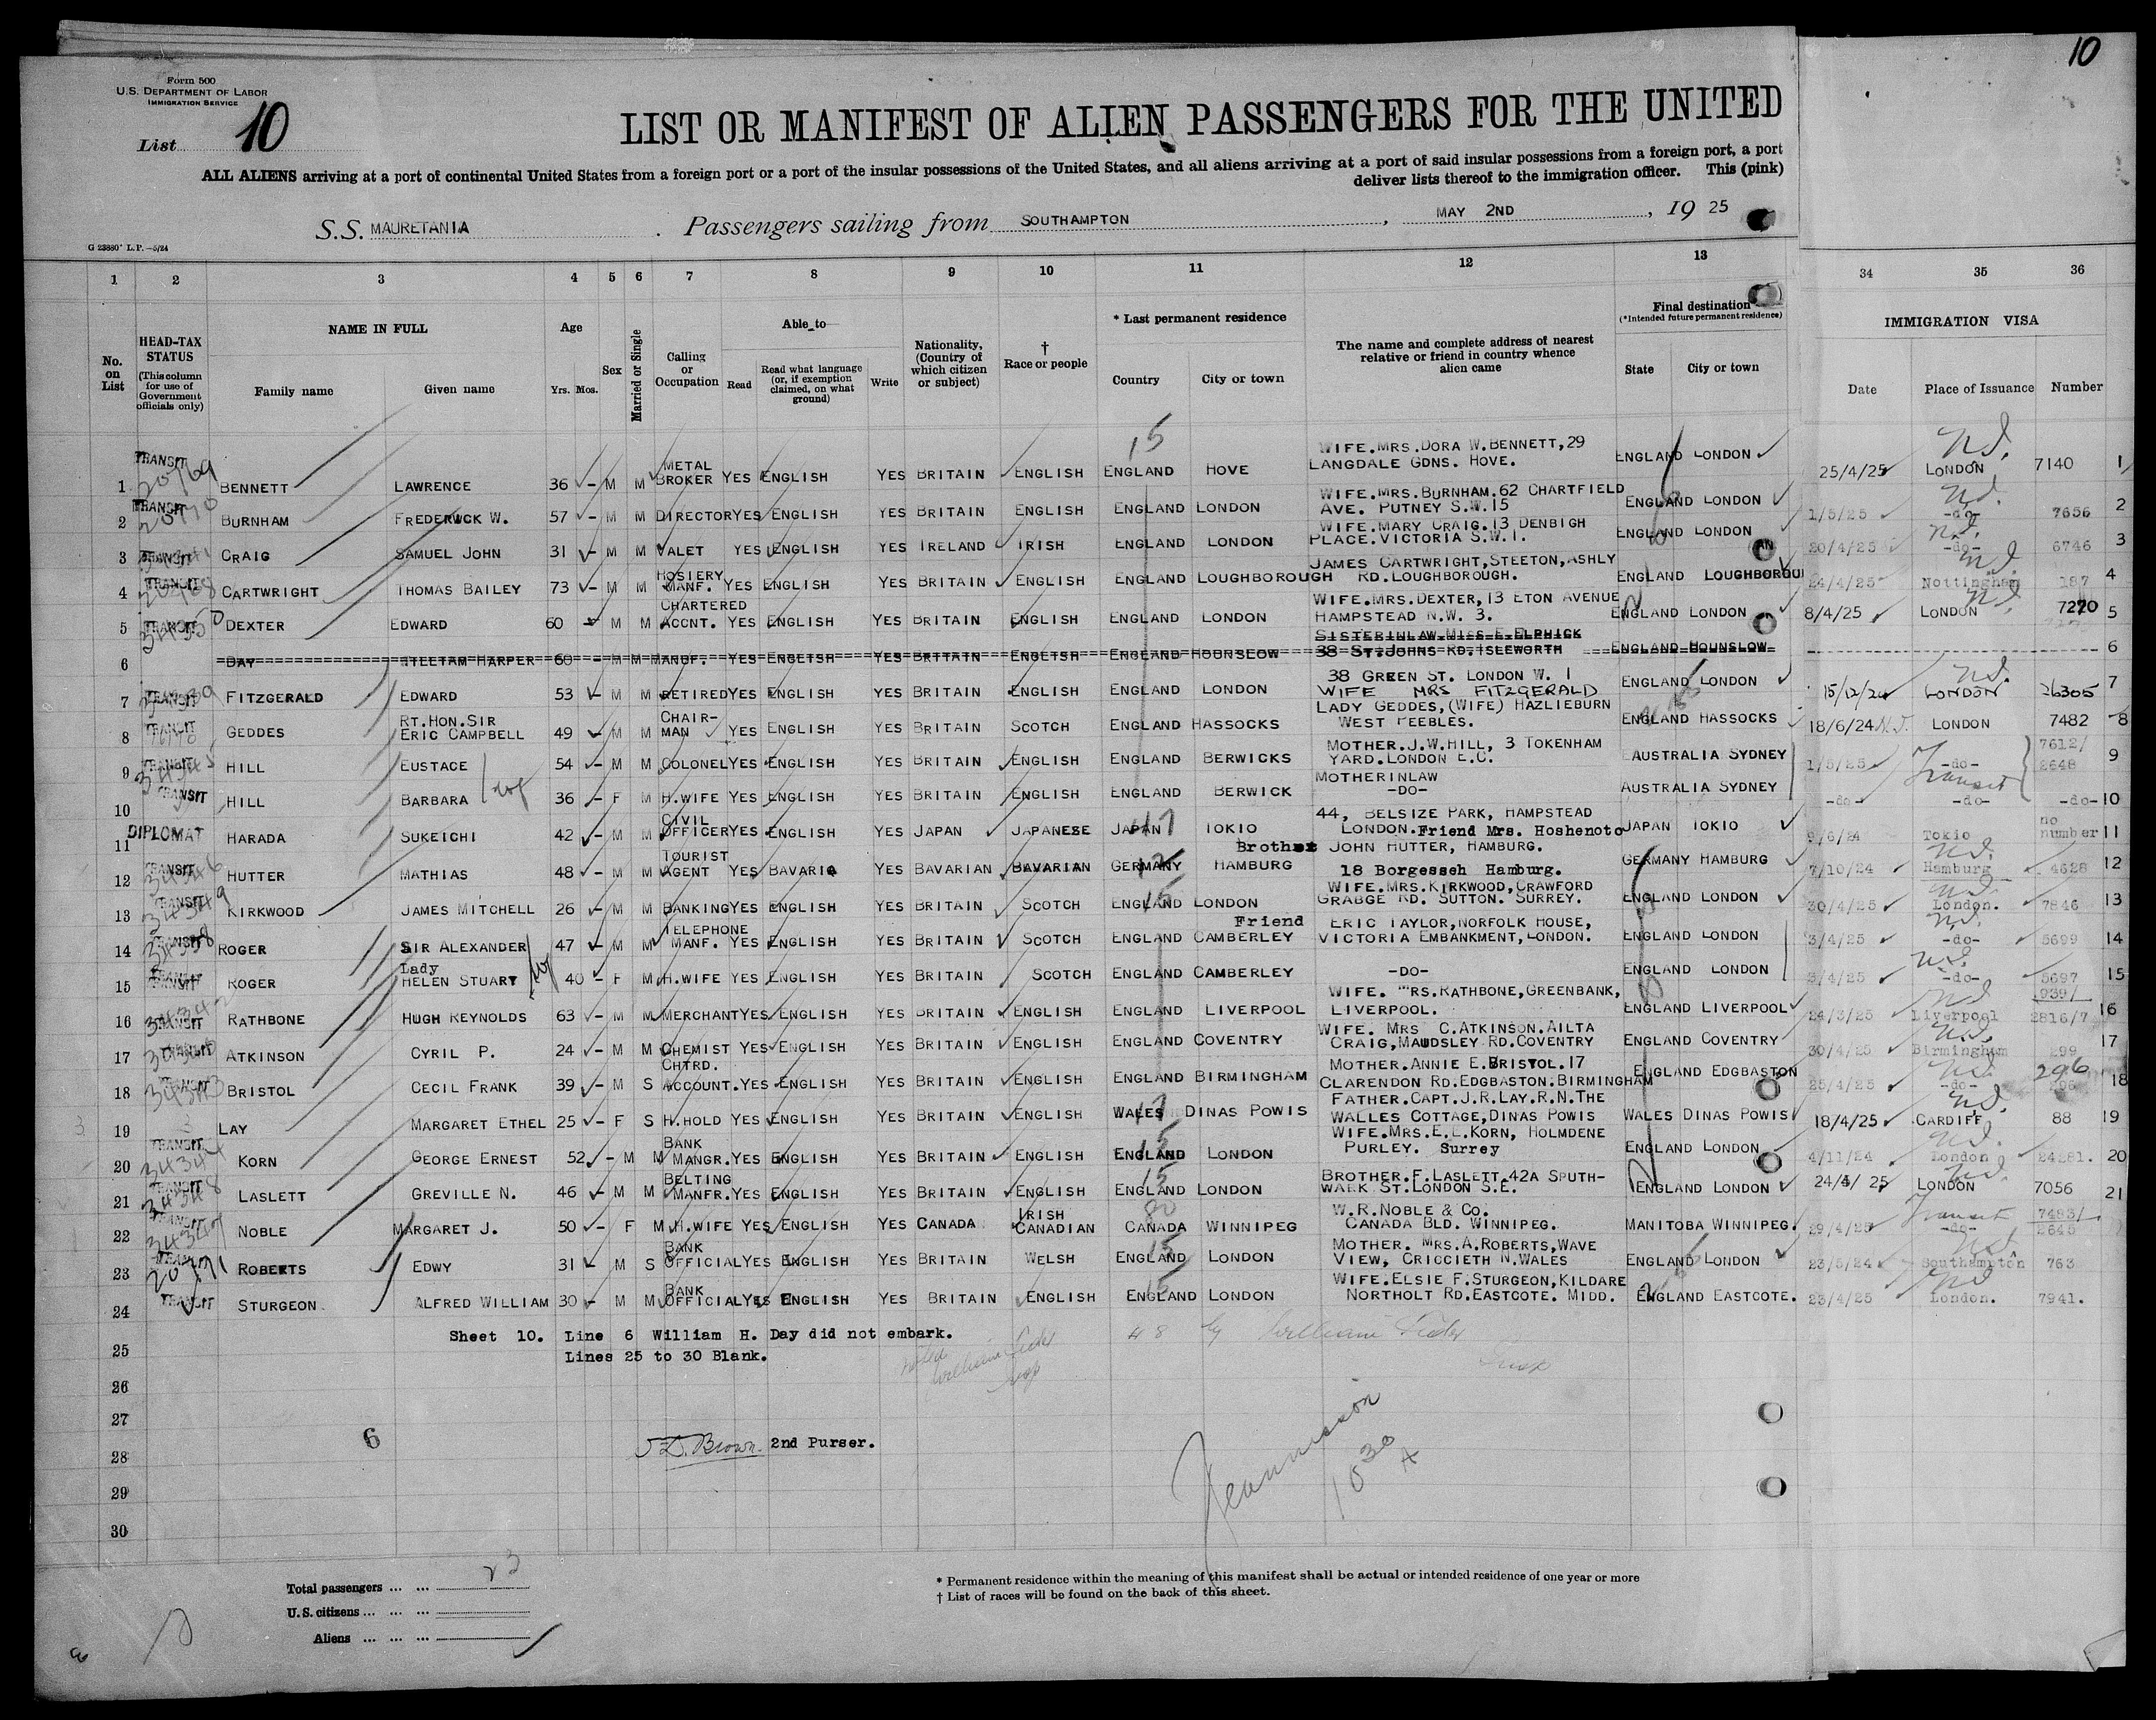 10
Form 500
U.S. DEPARTMENT OF LABOR
IMMIGRATION SERVICE
List 10
LIST OR MANIFEST OF ALIEN PASSENGERS FOR THE UNITED
ALL ALIENS arriving at a port of continental United States from a foreign port or a port of the insular possessions of the United States, and all aliens arriving at a port of said insular possessions from a foreign port, a port
deliver lists thereof to the immigration officer. This (pink)
S.S. MAURETANIA Passengers sailing from SOUTHAMPTON, MAY 2ND, 19 25
G 23880 L.P.—5/24
1 2 3 4 5 6 7 8 9 10 11 12 13 34 35 36
No. on List
HEAD-TAX STATUS (This column for use of Government officials only)
NAME IN FULL
Family name Given name
Age Yrs. Mos.
Sex
Married or Single
Calling or Occupation
Able to
Read Read what language (or, if exemption claimed, on what ground) Write
Nationality, (Country of which citizen or subject)
† Race or people
* Last permanent residence
Country City or town
The name and complete address of nearest relative or friend in country whence alien came
Final destination (*Intended future permanent residence)
State City or town
IMMIGRATION VISA
Date Place of Issuance Number
1 TRANSIT BENNETT LAWRENCE 36 – M M METAL BROKER YES ENGLISH YES BRITAIN ENGLISH ENGLAND HOVE WIFE.MRS.DORA W.BENNETT,29 LANGDALE GDNS. HOVE. ENGLAND LONDON 25/4/25 LONDON 7140 1
2 TRANSIT BURNHAM FREDERICK W. 57 – M M DIRECTOR YES ENGLISH YES BRITAIN ENGLISH ENGLAND LONDON WIFE.MRS.BURNHAM.62 CHARTFIELD AVE. PUTNEY S.W.15 ENGLAND LONDON 1/5/25 -do- 7656 2
3 TRANSIT CRAIG SAMUEL JOHN 31 – M M VALET YES ENGLISH YES IRELAND IRISH ENGLAND LONDON WIFE.MARY CRAIG.13 DENBIGH PLACE.VICTORIA S.W.1. ENGLAND LONDON 20/4/25 -do- 6746 3
4 TRANSIT CARTWRIGHT THOMAS BAILEY 73 – M M HOSIERY MANF. YES ENGLISH YES BRITAIN ENGLISH ENGLAND LOUGHBOROUGH JAMES CARTWRIGHT,STEETON,ASHLY RD.LOUGHBOROUGH. ENGLAND LOUGHBOROU 24/4/25 Nottingham 187 4
5 TRANSIT DEXTER EDWARD 60 M M CHARTERED ACCNT. YES ENGLISH YES BRITAIN ENGLISH ENGLAND LONDON WIFE.MRS.DEXTER,13 ETON AVENUE HAMPSTEAD N.W. 3. ENGLAND LONDON 8/4/25 LONDON 7270 5
6 DAY HARPER 60 – M M MANUF. YES ENGLISH YES BRITAIN ENGLISH ENGLAND HOUNSLOW SISTERINLAW.MISS.E.ELPHICK 38 ST.JOHNS RD.ISLEWORTH ENGLAND HOUNSLOW 6
7 TRANSIT FITZGERALD EDWARD 53 – M M RETIRED YES ENGLISH YES BRITAIN ENGLISH ENGLAND LONDON 38 GREEN ST. LONDON W. 1 WIFE MRS FITZGERALD ENGLAND LONDON 15/12/24 LONDON 26305 7
8 TRANSIT GEDDES RT.HON.SIR ERIC CAMPBELL 49 – M M CHAIR-MAN YES ENGLISH YES BRITAIN SCOTCH ENGLAND HASSOCKS LADY GEDDES,(WIFE) HAZLIEBURN WEST PEEBLES. ENGLAND HASSOCKS 18/6/24 LONDON 7482 8
9 TRANSIT HILL EUSTACE 54 – M M COLONEL YES ENGLISH YES BRITAIN ENGLISH ENGLAND BERWICKS MOTHER.J.W.HILL, 3 TOKENHAM YARD.LONDON E.C. AUSTRALIA SYDNEY 1/5/25 -do- Transit 7612/2648 9
10 TRANSIT HILL BARBARA 36 – F M H.WIFE YES ENGLISH YES BRITAIN ENGLISH ENGLAND BERWICK MOTHERINLAW -DO- AUSTRALIA SYDNEY -do- -do- -do- 10
11 DIPLOMAT HARADA SUKEICHI 42 – M M CIVIL OFFICER YES ENGLISH YES JAPAN JAPANESE JAPAN TOKIO 44, BELSIZE PARK, HAMPSTEAD LONDON. Friend Mrs. Hoshenoto JAPAN TOKIO 9/6/24 Tokio no number 11
12 TRANSIT HUTTER MATHIAS 48 – M M TOURIST AGENT YES BAVARIA YES BAVARIAN BAVARIAN GERMANY HAMBURG Brother JOHN HUTTER, HAMBURG. 18 Borgesseh Hamburg. GERMANY HAMBURG 7/10/24 Hamburg 4628 12
13 TRANSIT KIRKWOOD JAMES MITCHELL 26 – M M BANKING YES ENGLISH YES BRITAIN SCOTCH ENGLAND LONDON WIFE.MRS.KIRKWOOD,CRAWFORD GRABGE RD. SUTTON. SURREY. ENGLAND LONDON 30/4/25 London. 7846 13
14 TRANSIT ROGER SIR ALEXANDER 47 – M M TELEPHONE MANF. YES ENGLISH YES BRITAIN SCOTCH ENGLAND CAMBERLEY Friend ERIC TAYLOR,NORFOLK HOUSE, VICTORIA EMBANKMENT,LONDON. ENGLAND LONDON 3/4/25 -do- 5699 14
15 TRANSIT ROGER Lady HELEN STUART 40 – F M H.WIFE YES ENGLISH YES BRITAIN SCOTCH ENGLAND CAMBERLEY -DO- ENGLAND LONDON 3/4/25 -do- 5697 15
16 TRANSIT RATHBONE HUGH REYNOLDS 63 – M M MERCHANT YES ENGLISH YES BRITAIN ENGLISH ENGLAND LIVERPOOL WIFE. MRS.RATHBONE,GREENBANK, LIVERPOOL. ENGLAND LIVERPOOL 24/3/25 Liverpool 939/2816/7 16
17 TRANSIT ATKINSON CYRIL P. 24 – M M CHEMIST YES ENGLISH YES BRITAIN ENGLISH ENGLAND COVENTRY WIFE. MRS C.ATKINSON.AILTA CRAIG,MAUDSLEY RD.COVENTRY ENGLAND COVENTRY 30/4/25 Birmingham 299 17
18 TRANSIT BRISTOL CECIL FRANK 39 – M S CHTRD. ACCOUNT. YES ENGLISH YES BRITAIN ENGLISH ENGLAND BIRMINGHAM MOTHER.ANNIE E.BRISTOL.17 CLARENDON RD.EDGBASTON.BIRMINGHAM ENGLAND EDGBASTON 25/4/25 -do- 296 18
19 LAY MARGARET ETHEL 25 – F S H.HOLD YES ENGLISH YES BRITAIN ENGLISH WALES DINAS POWIS FATHER.CAPT.J.R.LAY.R.N.THE WALLES COTTAGE,DINAS POWIS WALES DINAS POWIS 18/4/25 CARDIFF 88 19
20 TRANSIT KORN GEORGE ERNEST 52 – M M BANK MANGR. YES ENGLISH YES BRITAIN ENGLISH ENGLAND LONDON WIFE.MRS.E.L.KORN, HOLMDENE PURLEY. Surrey ENGLAND LONDON 4/11/24 London 24281. 20
21 TRANSIT LASLETT GREVILLE N. 46 – M M BELTING MANFR. YES ENGLISH YES BRITAIN ENGLISH ENGLAND LONDON BROTHER.F.LASLETT.42A SPUTH-WARK ST.LONDON S.E. ENGLAND LONDON 24/4/25 LONDON 7056 21
22 TRANSIT NOBLE MARGARET J. 50 – F M H.WIFE YES ENGLISH YES CANADA IRISH CANADIAN CANADA WINNIPEG W.R.NOBLE & CO. CANADA BLD. WINNIPEG. MANITOBA WINNIPEG. 29/4/25 Transit -do- 7483/2645 22
23 TRANSIT ROBERTS EDWY 31 – M S BANK OFFICIAL YES ENGLISH YES BRITAIN WELSH ENGLAND LONDON MOTHER. MRS.A.ROBERTS,WAVE VIEW, CRICCIETH N.WALES ENGLAND LONDON 23/5/24 Southampton 763 23
24 TRANSIT STURGEON ALFRED WILLIAM 30 – M M BANK OFFICIAL YES ENGLISH YES BRITAIN ENGLISH ENGLAND LONDON WIFE.ELSIE F.STURGEON,KILDARE NORTHOLT RD.EASTCOTE. MIDD. ENGLAND EASTCOTE. 23/4/25 London. 7941. 24
Sheet 10. Line 6 William H. Day did not embark.
25 Lines 25 to 30 Blank.
26
27
6
28 Brown. 2nd Purser.
29
30
Total passengers ... ... 23
U.S. citizens ... ... ...
Aliens ... ... ...
* Permanent residence within the meaning of this manifest shall be actual or intended residence of one year or more
† List of races will be found on the back of this sheet.